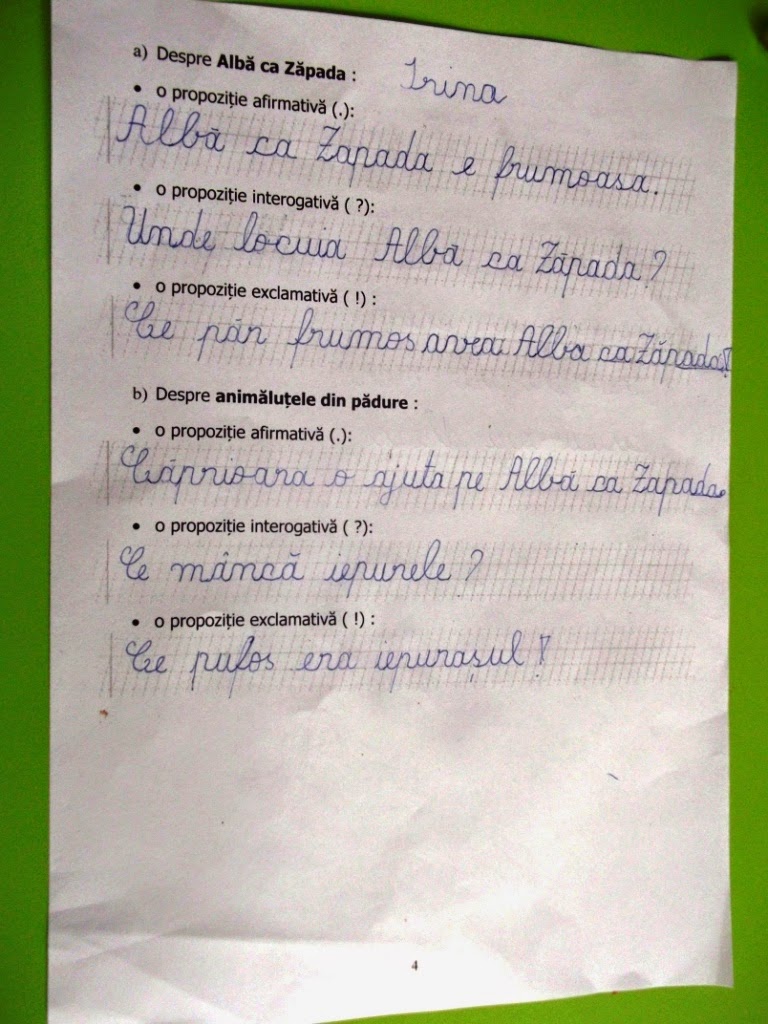 a) Despre Albă ca Zăpada :
Irina
• o propoziție afirmativă (.):
Albă ca Zapada e frumoasa.
• o propoziție interogativă ( ?):
Unde locuia Albă ca Zăpada?
• o propoziție exclamativă ( !) :
Ce păr frumos avea Alba ca Zăpada!
b) Despre animăluțele din pădure :
• o propoziție afirmativă (.):
Căprioara o ajuta pe Albă ca Zapada.
• o propoziție interogativă ( ?):
Ce mâncă iepurele ?
• o propoziție exclamativă ( !) :
Ce pufos era iepurașul !
4